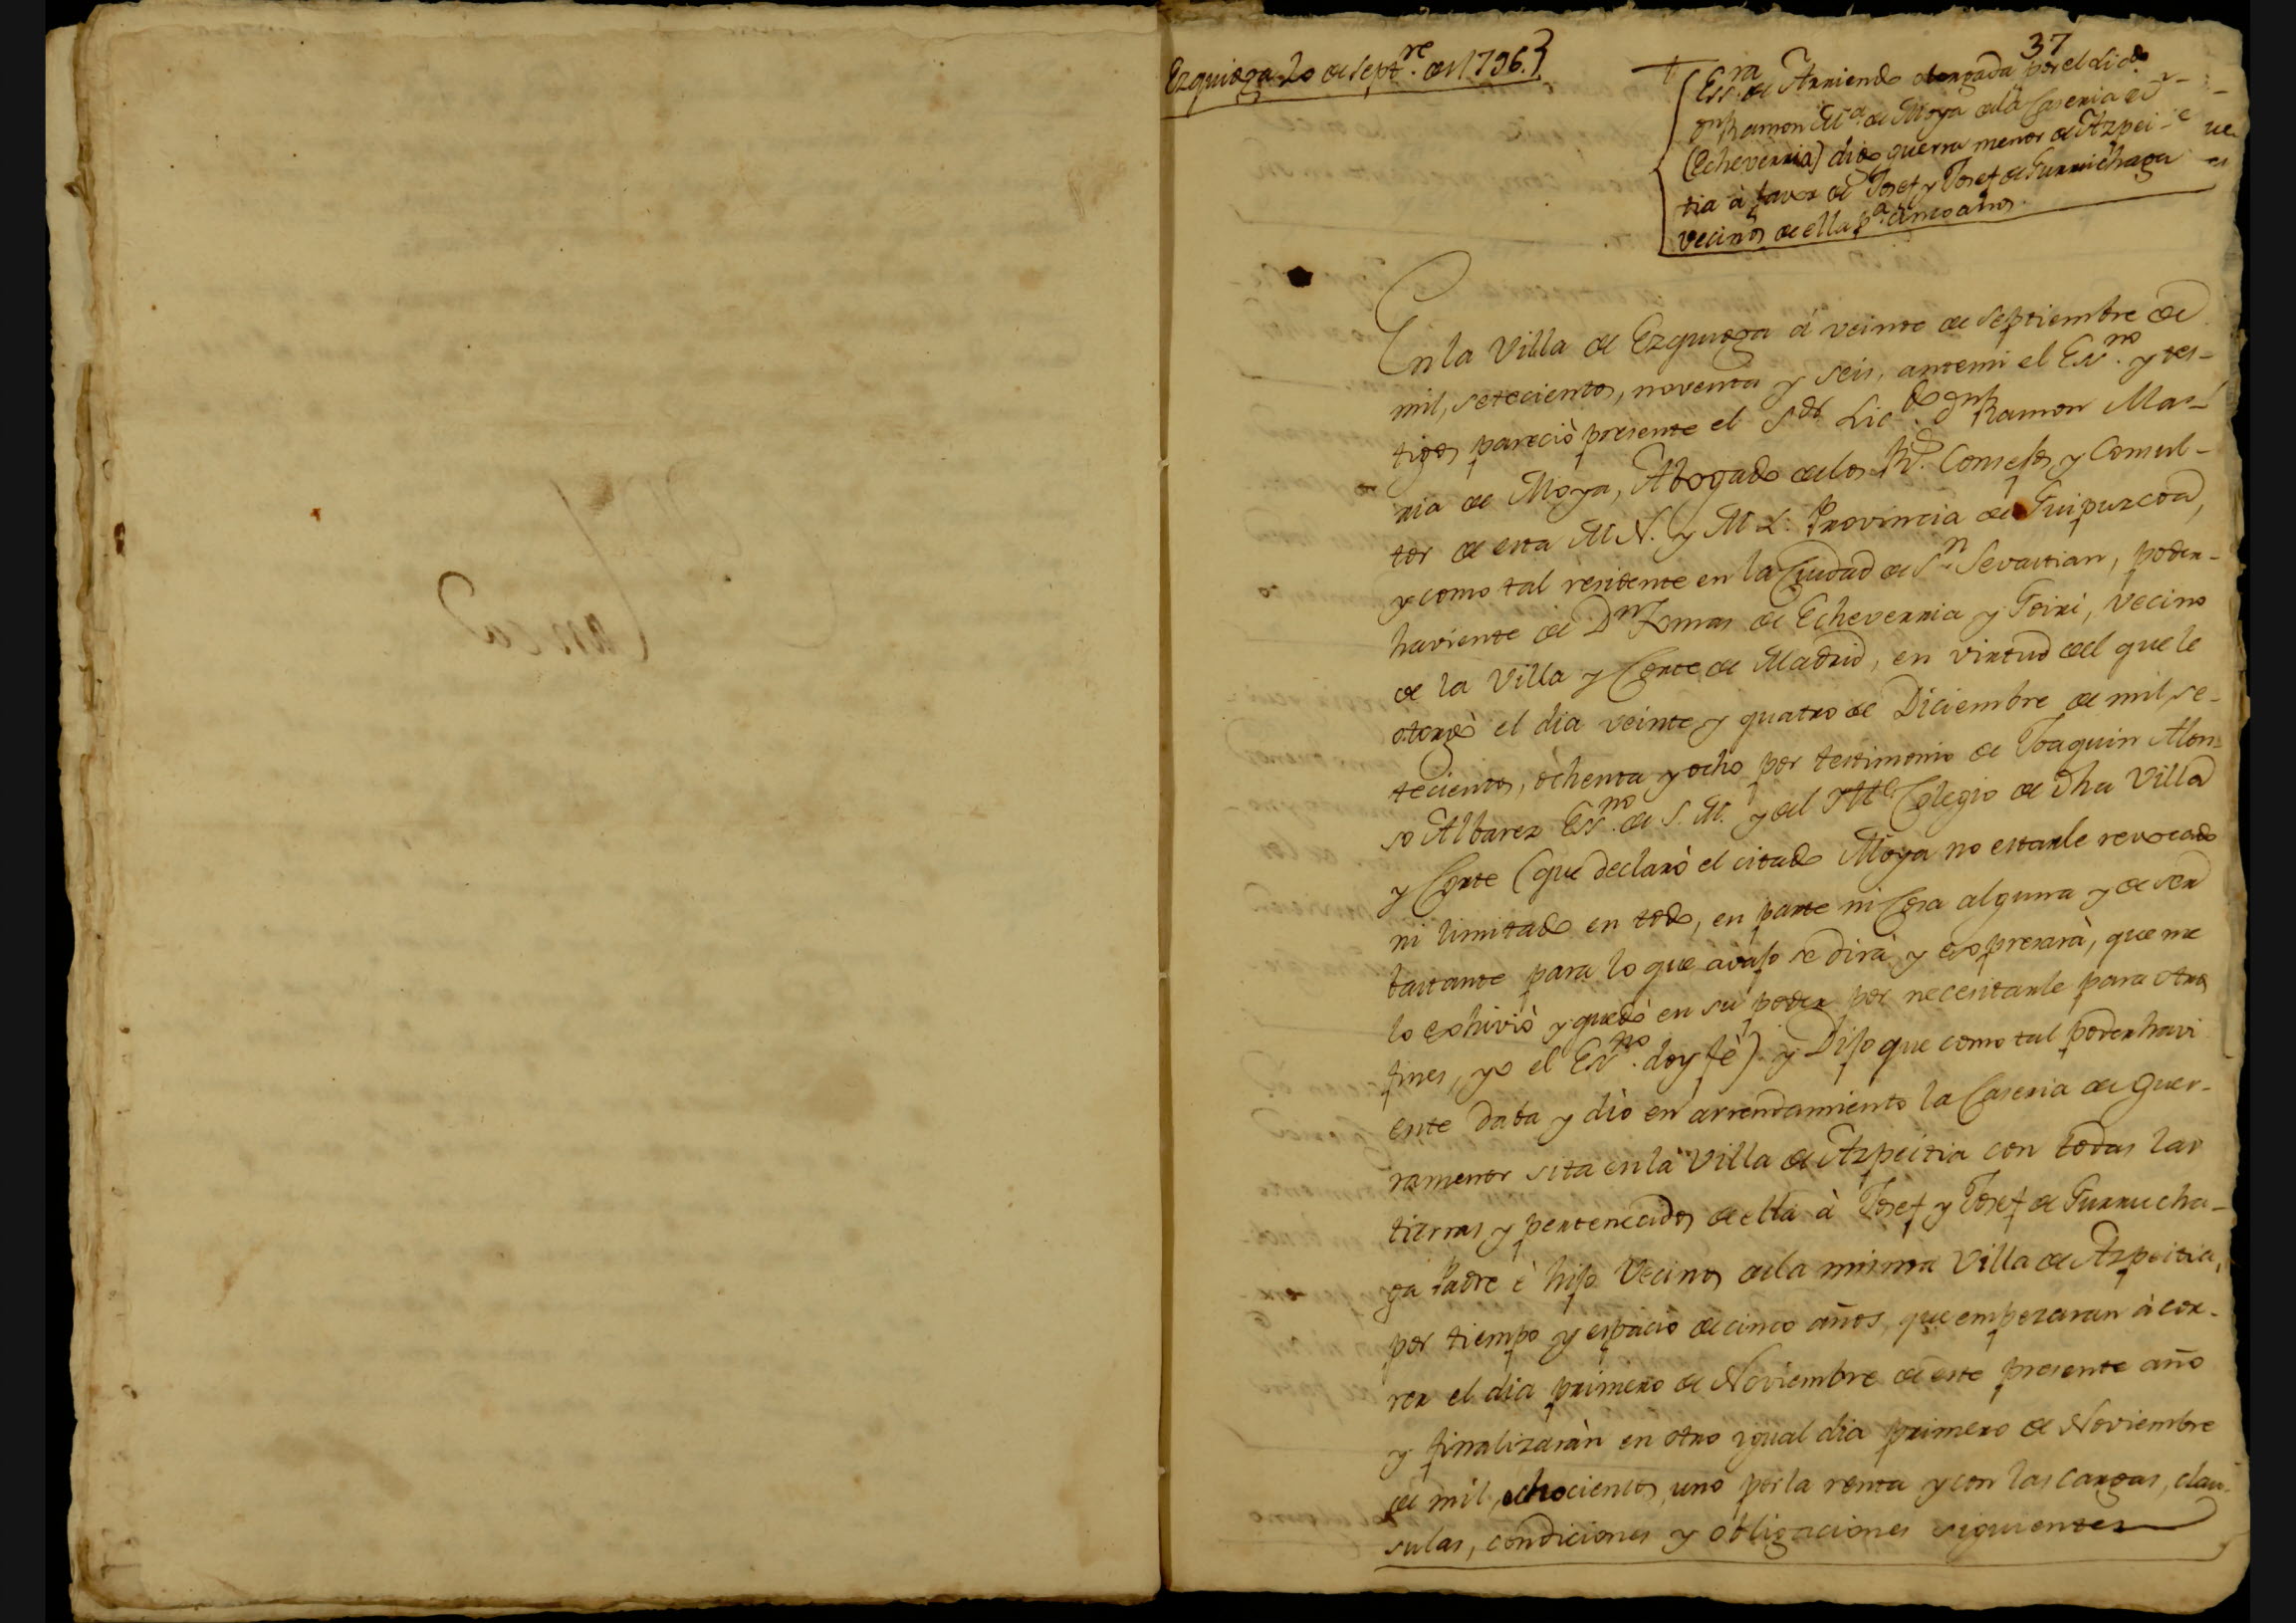 Ezquioga 20 de Septre. de 1796.
37
Essra. de Arriendo otorgada por el Licdo.
Dn Ramon Ma. de Moya de la Caseria de
(Echeverria) digo guerra menor de Azpei-
tia à favor de Josef y Josef de Gurruchaga
vecinos de ella pa. cinco años.
En la Villa de Ezquioga à veinte de Septiembre de
mil, setecientos, noventa y seis, antemi el Essno. y tes-
tigos pareciò presente el Sor. Licdo. Dn Ramon Ma-
ria de Moya, Abogado de los Rs. Consejos, y Consul-
tor de esta M.N. y M.L. Provincia de Guipuzcoa,
y como tal residente en la Ciudad de Sn. Sevastian, poder-
haviente de Dn Tomas de Echeverria y Goiri, Vecino
de la Villa y Corte de Madrid, en virtud del que le
otorgò el dia veinte y quatro de Diciembre de mil, se-
tecientos, ochenta y ocho por testimonio de Joaquin Alon-
so Albarez Essno. de S.M. y del Itte. Colegio de dha Villa
y Corte (que declarò el citado Moya no estarle revocado
ni limitado en todo, en parte ni cosa alguna y de ser
bastante para lo que avajo se dirà y expresarà, que me
lo exhiviò y quedò en su poder por necesitarle para otros
fines, yo el Essno. doy fè) y Dijo que como tal poderhavi
ente daba y diò en arrendamiento la Caseria de Guer-
ramenor sita en la Villa de Azpeitia con todas las
tierras y pertenecidos de ella à Josef y Josef de Gurrucha-
ga Padre è hijo Vecinos de la misma Villa de Azpeitia,
por tiempo y espacio de cinco años, que empezaran à cor-
rer el dia primero de Noviembre de este presente año
y finalizaràn en otro igual dia primero de Noviembre
de mil, ochocientos, uno por la renta y con las cargas, clau-
sulas, condiciones y obligaciones siguientes